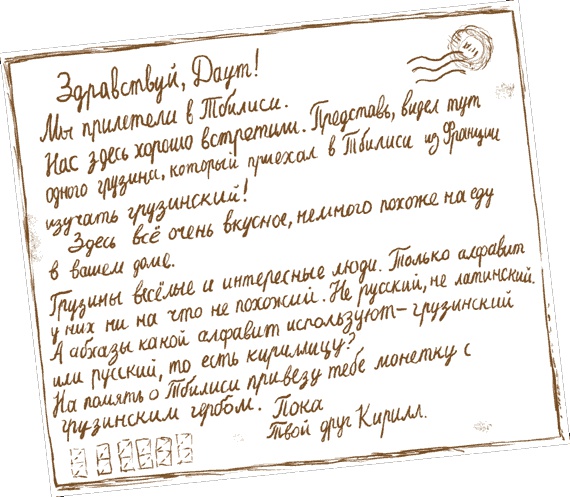 Здравствуй, Даут!
Мы прилетели в Тбилиси.
Нас здесь хорошо встретили. Представь, видел тут
одного грузина, который приехал в Тбилиси из Франции
изучать грузинский!
Здесь всё очень вкусное, немного похоже на еду
в вашем доме.
Грузины весёлые и интересные люди. Только алфавит
у них ни на что не похожий. Не русский, не латинский.
А абхазы какой алфавит используют – грузинский
или русский, то есть кириллицу?
На память о Тбилиси привезу тебе монетку с
грузинским гербом. Пока
Твой друг Кирилл.